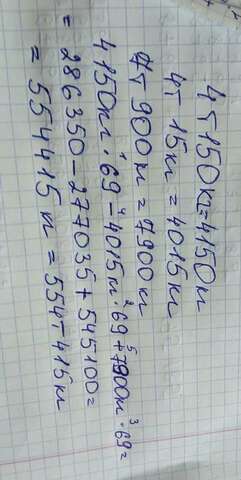 4т 150кг=4150кг
4т 15кг = 4015кг
7т 900кг = 7900кг
4150кг · 69 - 4015кг · 69 + 7900кг · 69 =
= 286350 - 277035 + 545100 =
= 554415кг = 554т 415кг